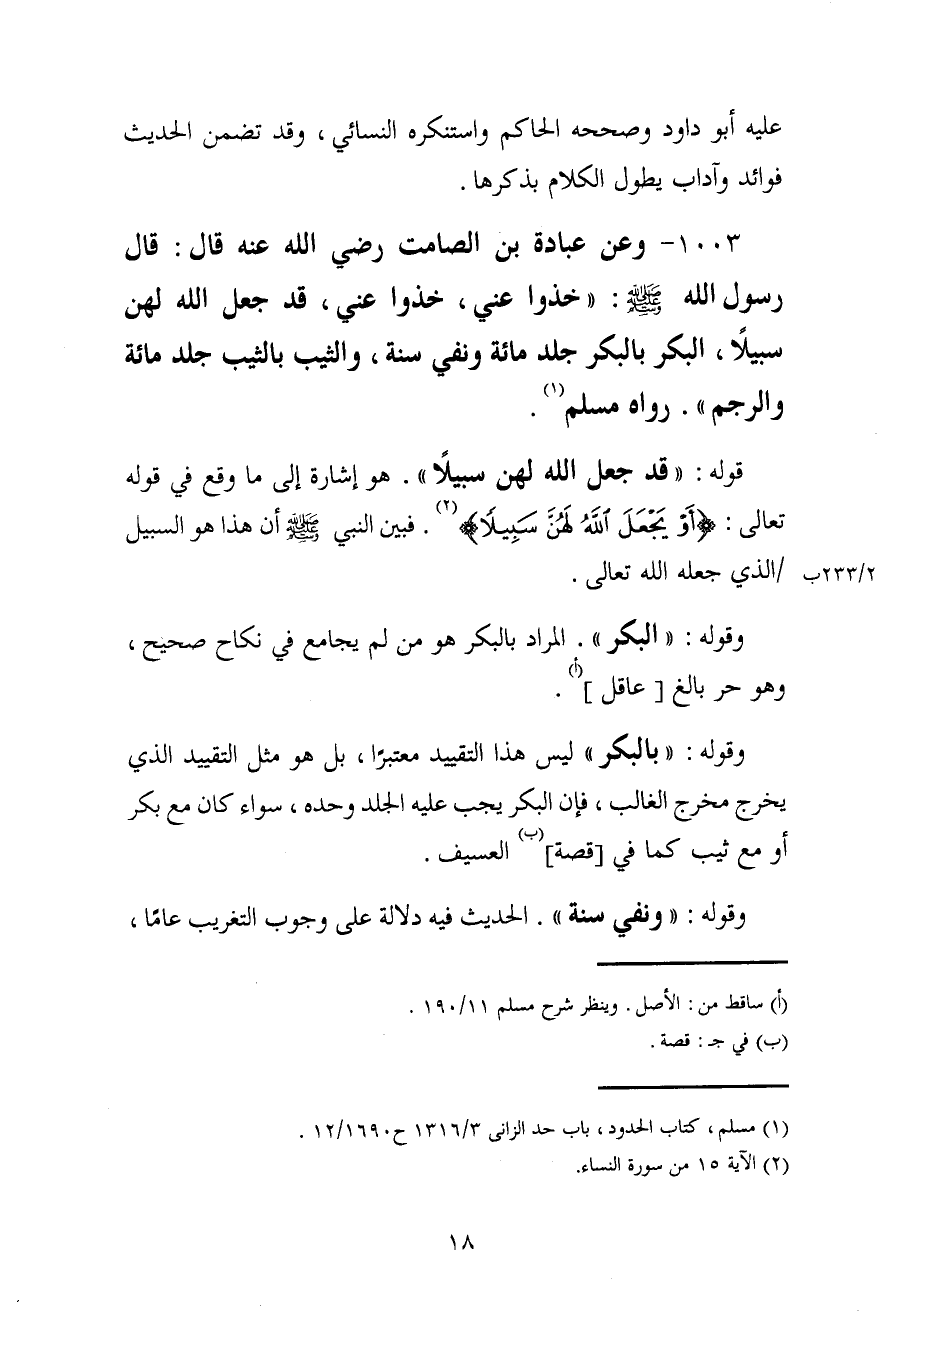 عليه أبو داود وصححه الحاكم واستنكره النسائي ، وقد تضمن الحديث
فوائد وآداب يطول الكلام بذكرها .
١٠٠٣- وعن عبادة بن الصامت رضي الله عنه قال : قال
رسول الله ﷺ : « خذوا عني ، خذوا عني ، قد جعل الله لهن
سبيلًا ، البكر بالبكر جلد مائة ونفي سنة ، والثيب بالثيب جلد مائة
والرجم » . رواه مسلم(١) .
قوله : « قد جعل الله لهن سبيلًا » . هو إشارة إلى ما وقع في قوله
تعالى : ﴿أَوْ يَجْعَلَ ٱللَّهُ لَهُنَّ سَبِيلًا﴾(٢) . فبين النبي ﷺ أن هذا هو السبيل
٢٣٣/٢ب /الذي جعله الله تعالى .
وقوله : « البكر » . المراد بالبكر هو من لم يجامع في نكاح صحيح ،
وهو حر بالغ [ عاقل ](أ) .
وقوله : « بالبكر » ليس هذا التقييد معتبرًا ، بل هو مثل التقييد الذي
يخرج مخرج الغالب ، فإن البكر يجب عليه الجلد وحده ، سواء كان مع بكر
أو مع ثيب كما في [قصة](ب) العسيف .
وقوله : « ونفي سنة » . الحديث فيه دلالة على وجوب التغريب عامًا ،
(أ) ساقط من : الأصل . وينظر شرح مسلم ١٩٠/١١ .
(ب) في جـ : قصة .
(١) مسلم ، كتاب الحدود ، باب حد الزانى ١٣١٦/٣ ح١٢/١٦٩٠ .
(٢) الآية ١٥ من سورة النساء.
١٨